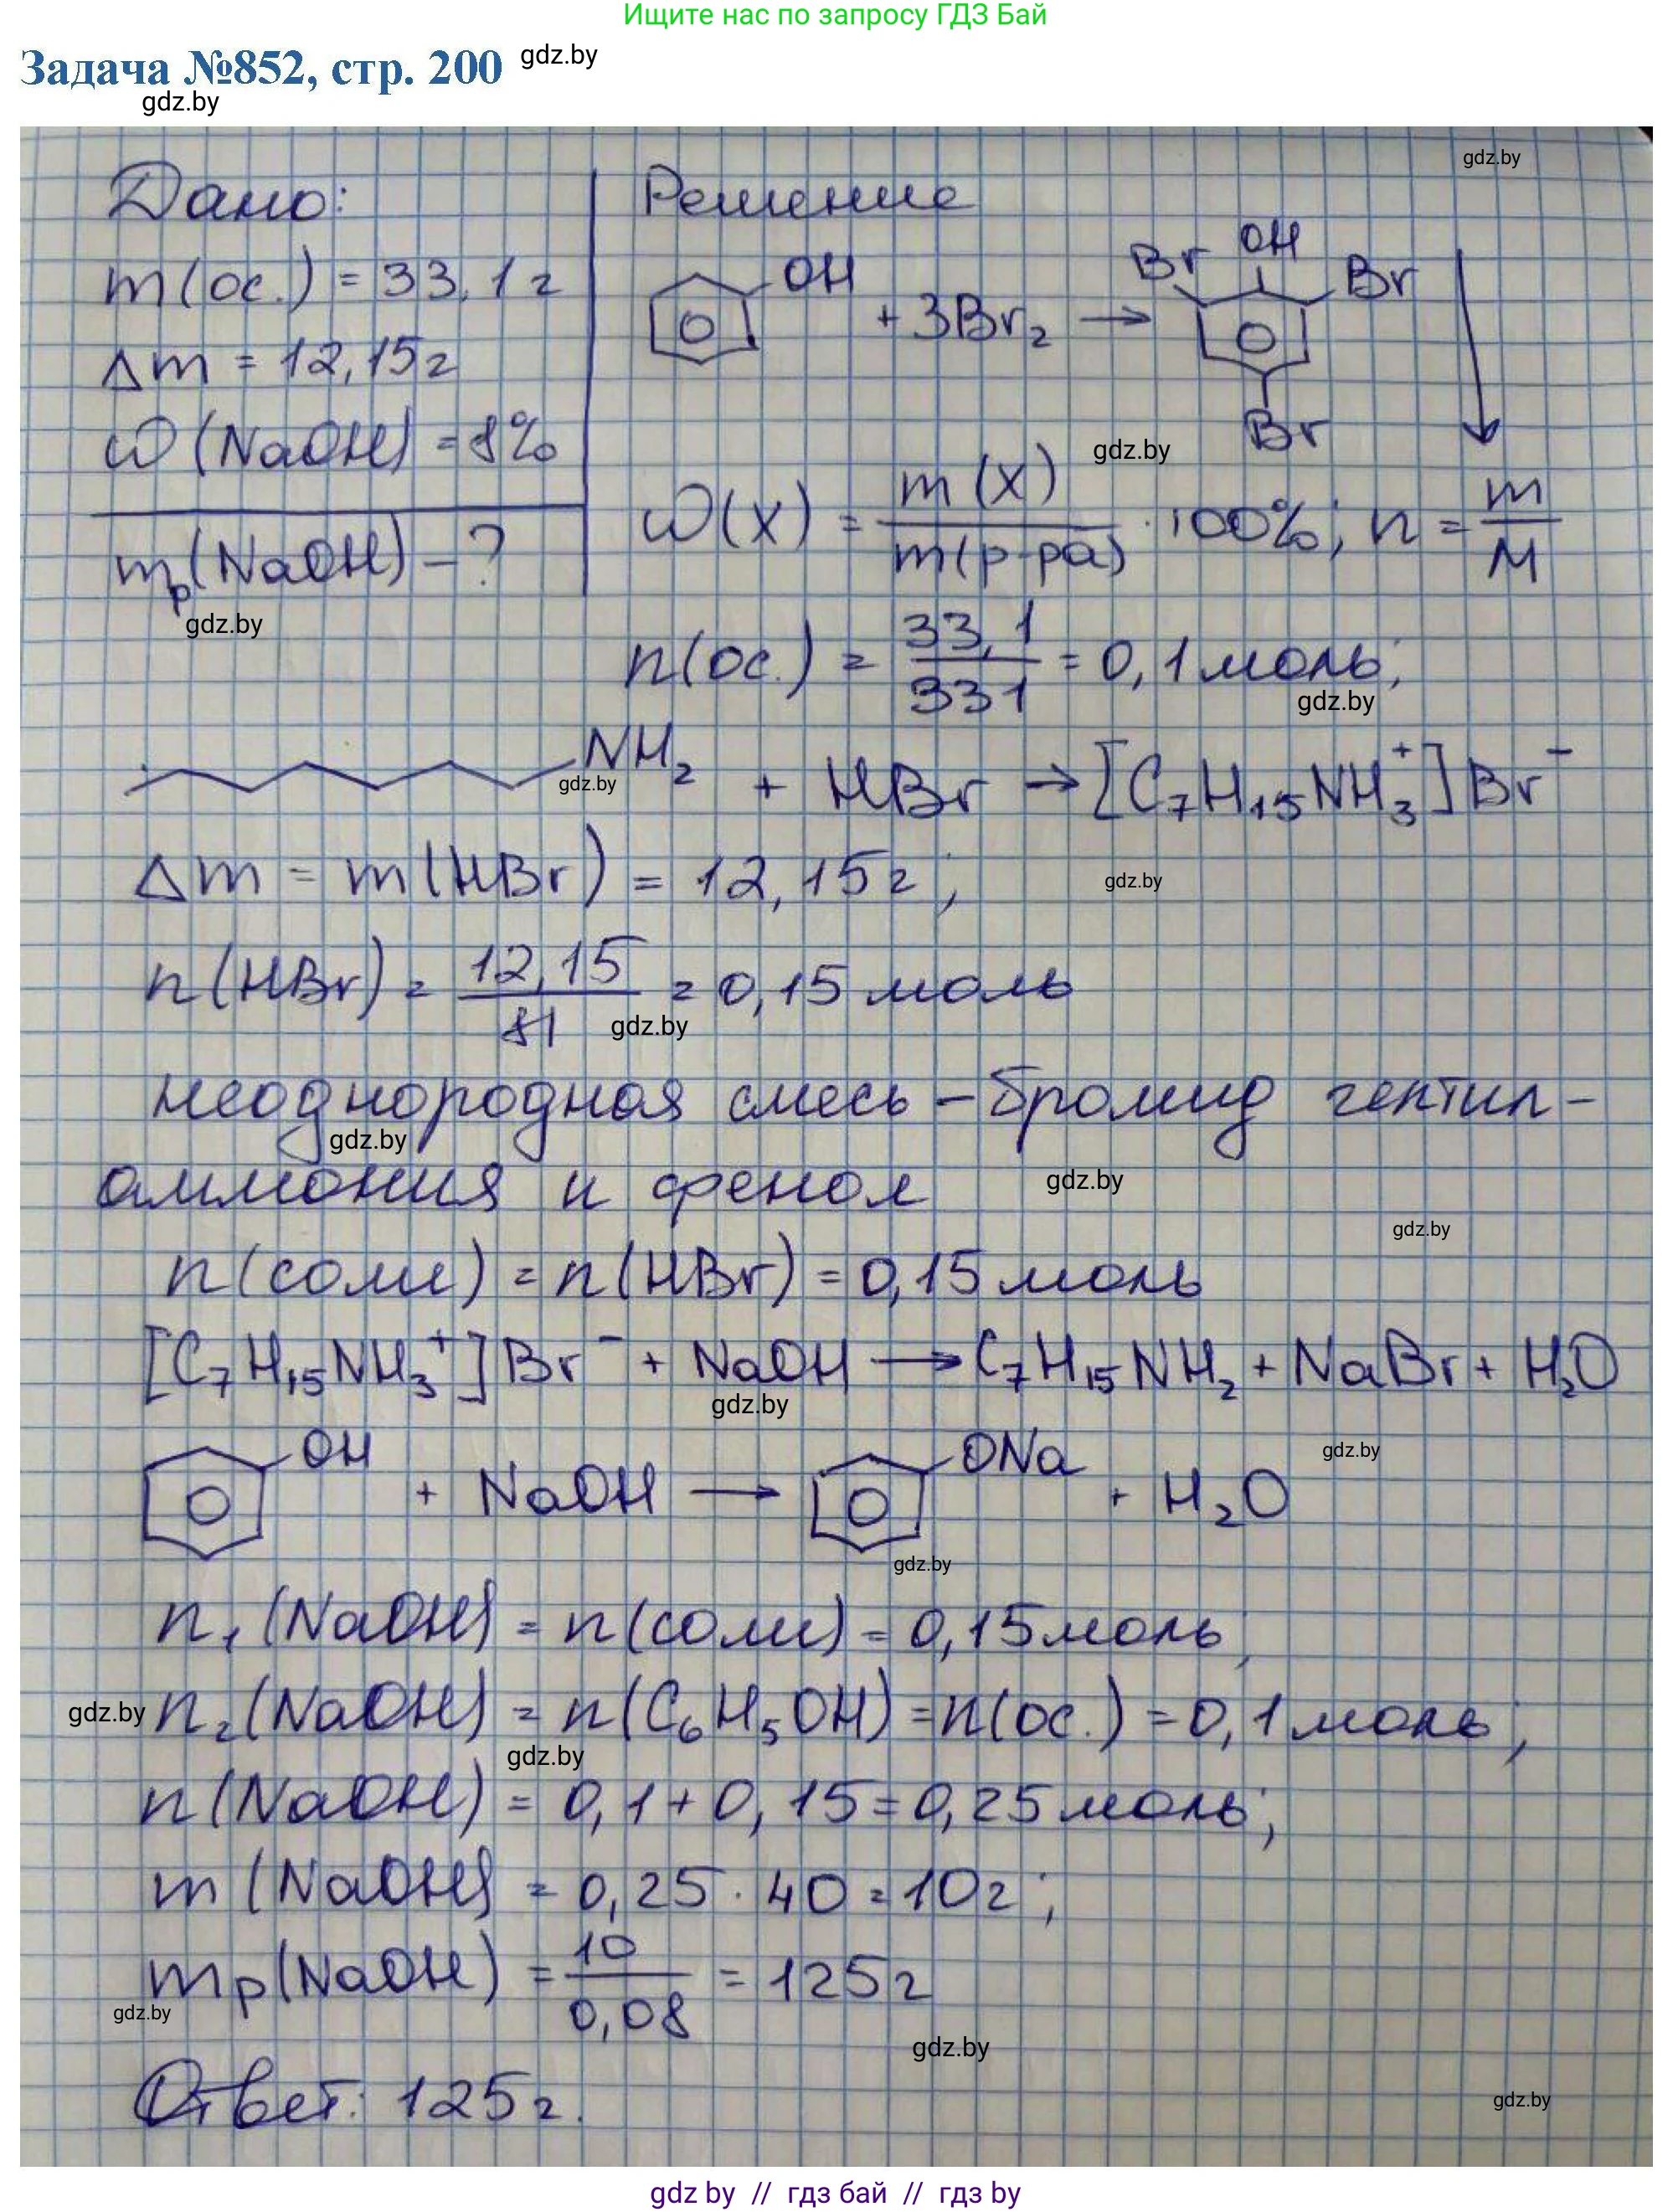 Ищите нас по запросу ГДЗ Бай
Задача №852, стр. 200 gdz.by
gdz.by
gdz.by
Дано:
m(ос.) = 33,1г
Δm = 12,15г
ω(NaOH) = 8%
mр(NaOH) – ?
gdz.by
Решение
OH + 3Br₂ → Br OH Br Br ↓
gdz.by
ω(X) = m(X) / m(р-ра) · 100%; n = m / M
n(ос.) = 33,1 / 331 = 0,1моль;
gdz.by
NH₂ + HBr → [C₇H₁₅NH₃⁺]Br⁻
gdz.by
Δm = m(HBr) = 12,15г;
gdz.by
n(HBr) = 12,15 / 81 = 0,15моль
gdz.by
неоднородная смесь – бромид гептил-
gdz.by
аммония и фенол
gdz.by
gdz.by
n(соли) = n(HBr) = 0,15моль
[C₇H₁₅NH₃⁺]Br⁻ + NaOH → C₇H₁₅NH₂ + NaBr + H₂O
gdz.by
OH + NaOH → ONa + H₂O
gdz.by
gdz.by
n₁(NaOH) = n(соли) = 0,15моль;
gdz.by n₂(NaOH) = n(C₆H₅OH) = n(ос.) = 0,1моль;
gdz.by
n(NaOH) = 0,1 + 0,15 = 0,25моль;
m(NaOH) = 0,25 · 40 = 10г;
mр(NaOH) = 10 / 0,08 = 125г
gdz.by
gdz.by
Ответ: 125г.
gdz.by
gdz by // гдз бай // гдз by